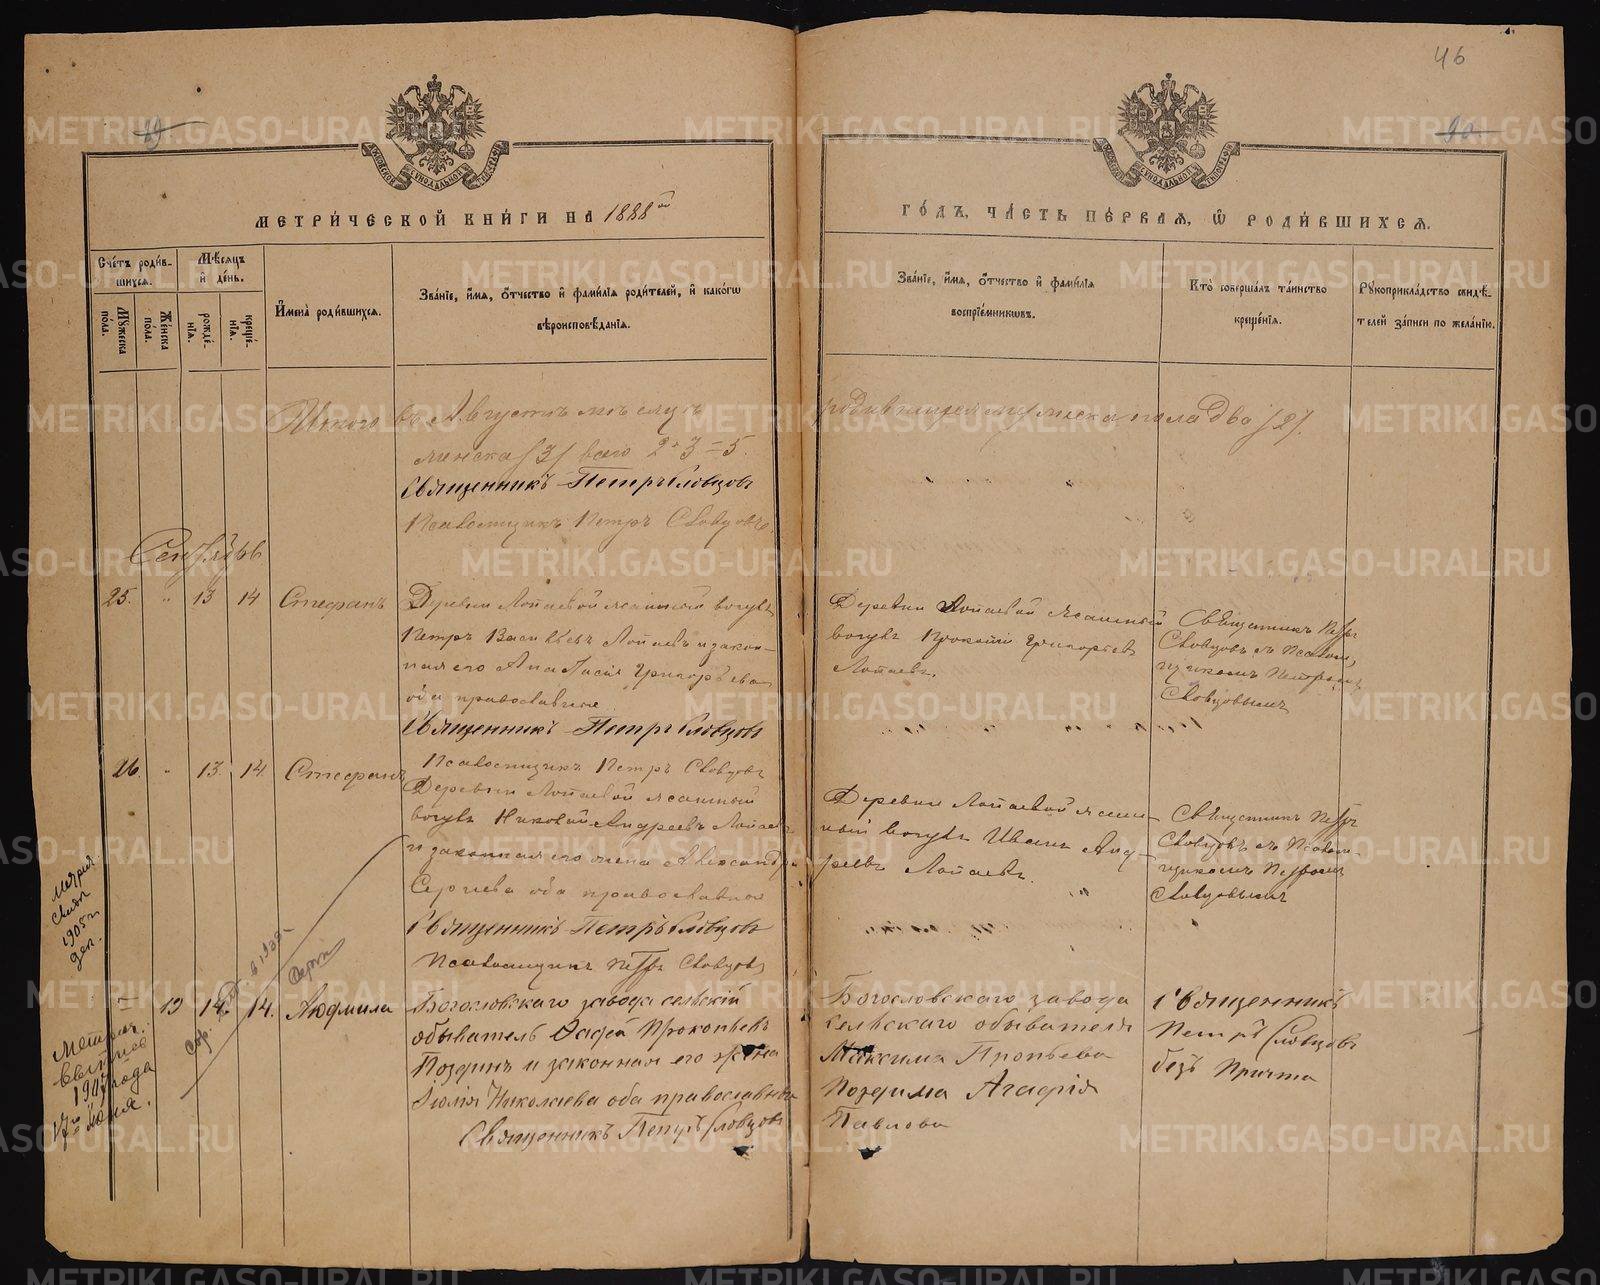 46
89
90
МЕТРИ́ЧЕСКОЙ КНИ́ГИ НА 1888 ой
ГО́ДЪ, ЧА́СТЬ ПЕ́РВАЯ, Ѡ҆ РОДИ́ВШИХСЯ.
Сче́тъ роди́в-
шихся.
Мѣ́сяцъ
и҆ де́нь.
Мꙋ́жеска
по́ла.
Же́нска
по́ла.
рожде́-
нїя.
креще́-
нїя.
И҆мена̀ роди́вшихся.
Зва́нїе, и҆́мя, ѻ҆́тчество и҆ фами́лїя роди́телей, и҆ како́гѡ
вѣроисповѣ́данїя.
Зва́нїе, и҆́мя, ѻ҆́тчество и҆ фами́лїя
воспрїе́мникѡвъ.
Кто̀ соверша́лъ та́инство
креще́нїя.
Рꙋкоприкла́дство свидѣ́-
телей за́писи по жела́нїю.
Итого въ Августѣ мѣсяцѣ
родившихся мужеска пола два /2/.
женска /3/ всего 2+3=5.
Священникъ Петръ Словцовъ
Псаломщикъ Петръ Словцовъ
Сентябрь
25. " 13 14 Стефанъ
Деревни Лопаевой ясашный вогулъ
Петръ Васильевъ Лопаевъ и закон-
ная его Анаѳасія Григорьева
оба православные
Священникъ Петръ Словцовъ
Псаломщикъ Петръ Словцовъ
Деревни Лопаевой ясашный
вогулъ Прокопій Григорьевъ
Лопаевъ.
Священникъ Петръ
Словцовъ съ Псалом-
щикомъ Петромъ
Словцовымъ
26. " 13. 14. Стефанъ
Деревни Лопаевой ясашный
вогулъ Николай Андреевъ Лопаевъ
и законная его жена Александра
Сергіева оба православные
Священникъ Петръ Словцовъ
Псаломщикъ Петръ Словцовъ
Деревни Лопаевой ясаш-
ный вогулъ Иванъ Анд-
реевъ Лопаевъ.
Священникъ Петръ
Словцовъ съ Псалом-
щикомъ Петромъ
Словцовымъ
1905 г.
– 19 14. 14. Людмила
Богословскаго завода сельскій
обыватель Фадей Прокопьевъ
Поздинъ и законная его жена
Іюлія Николаева оба православные
Священникъ Петръ Словцовъ
Богословскаго завода
сельскаго обывателя
Максима Прокьева
Поздина Агафія
Павлова
Священникъ
Петръ Словцовъ
безъ Причта
Метрич.
1907 года
17го Июня.